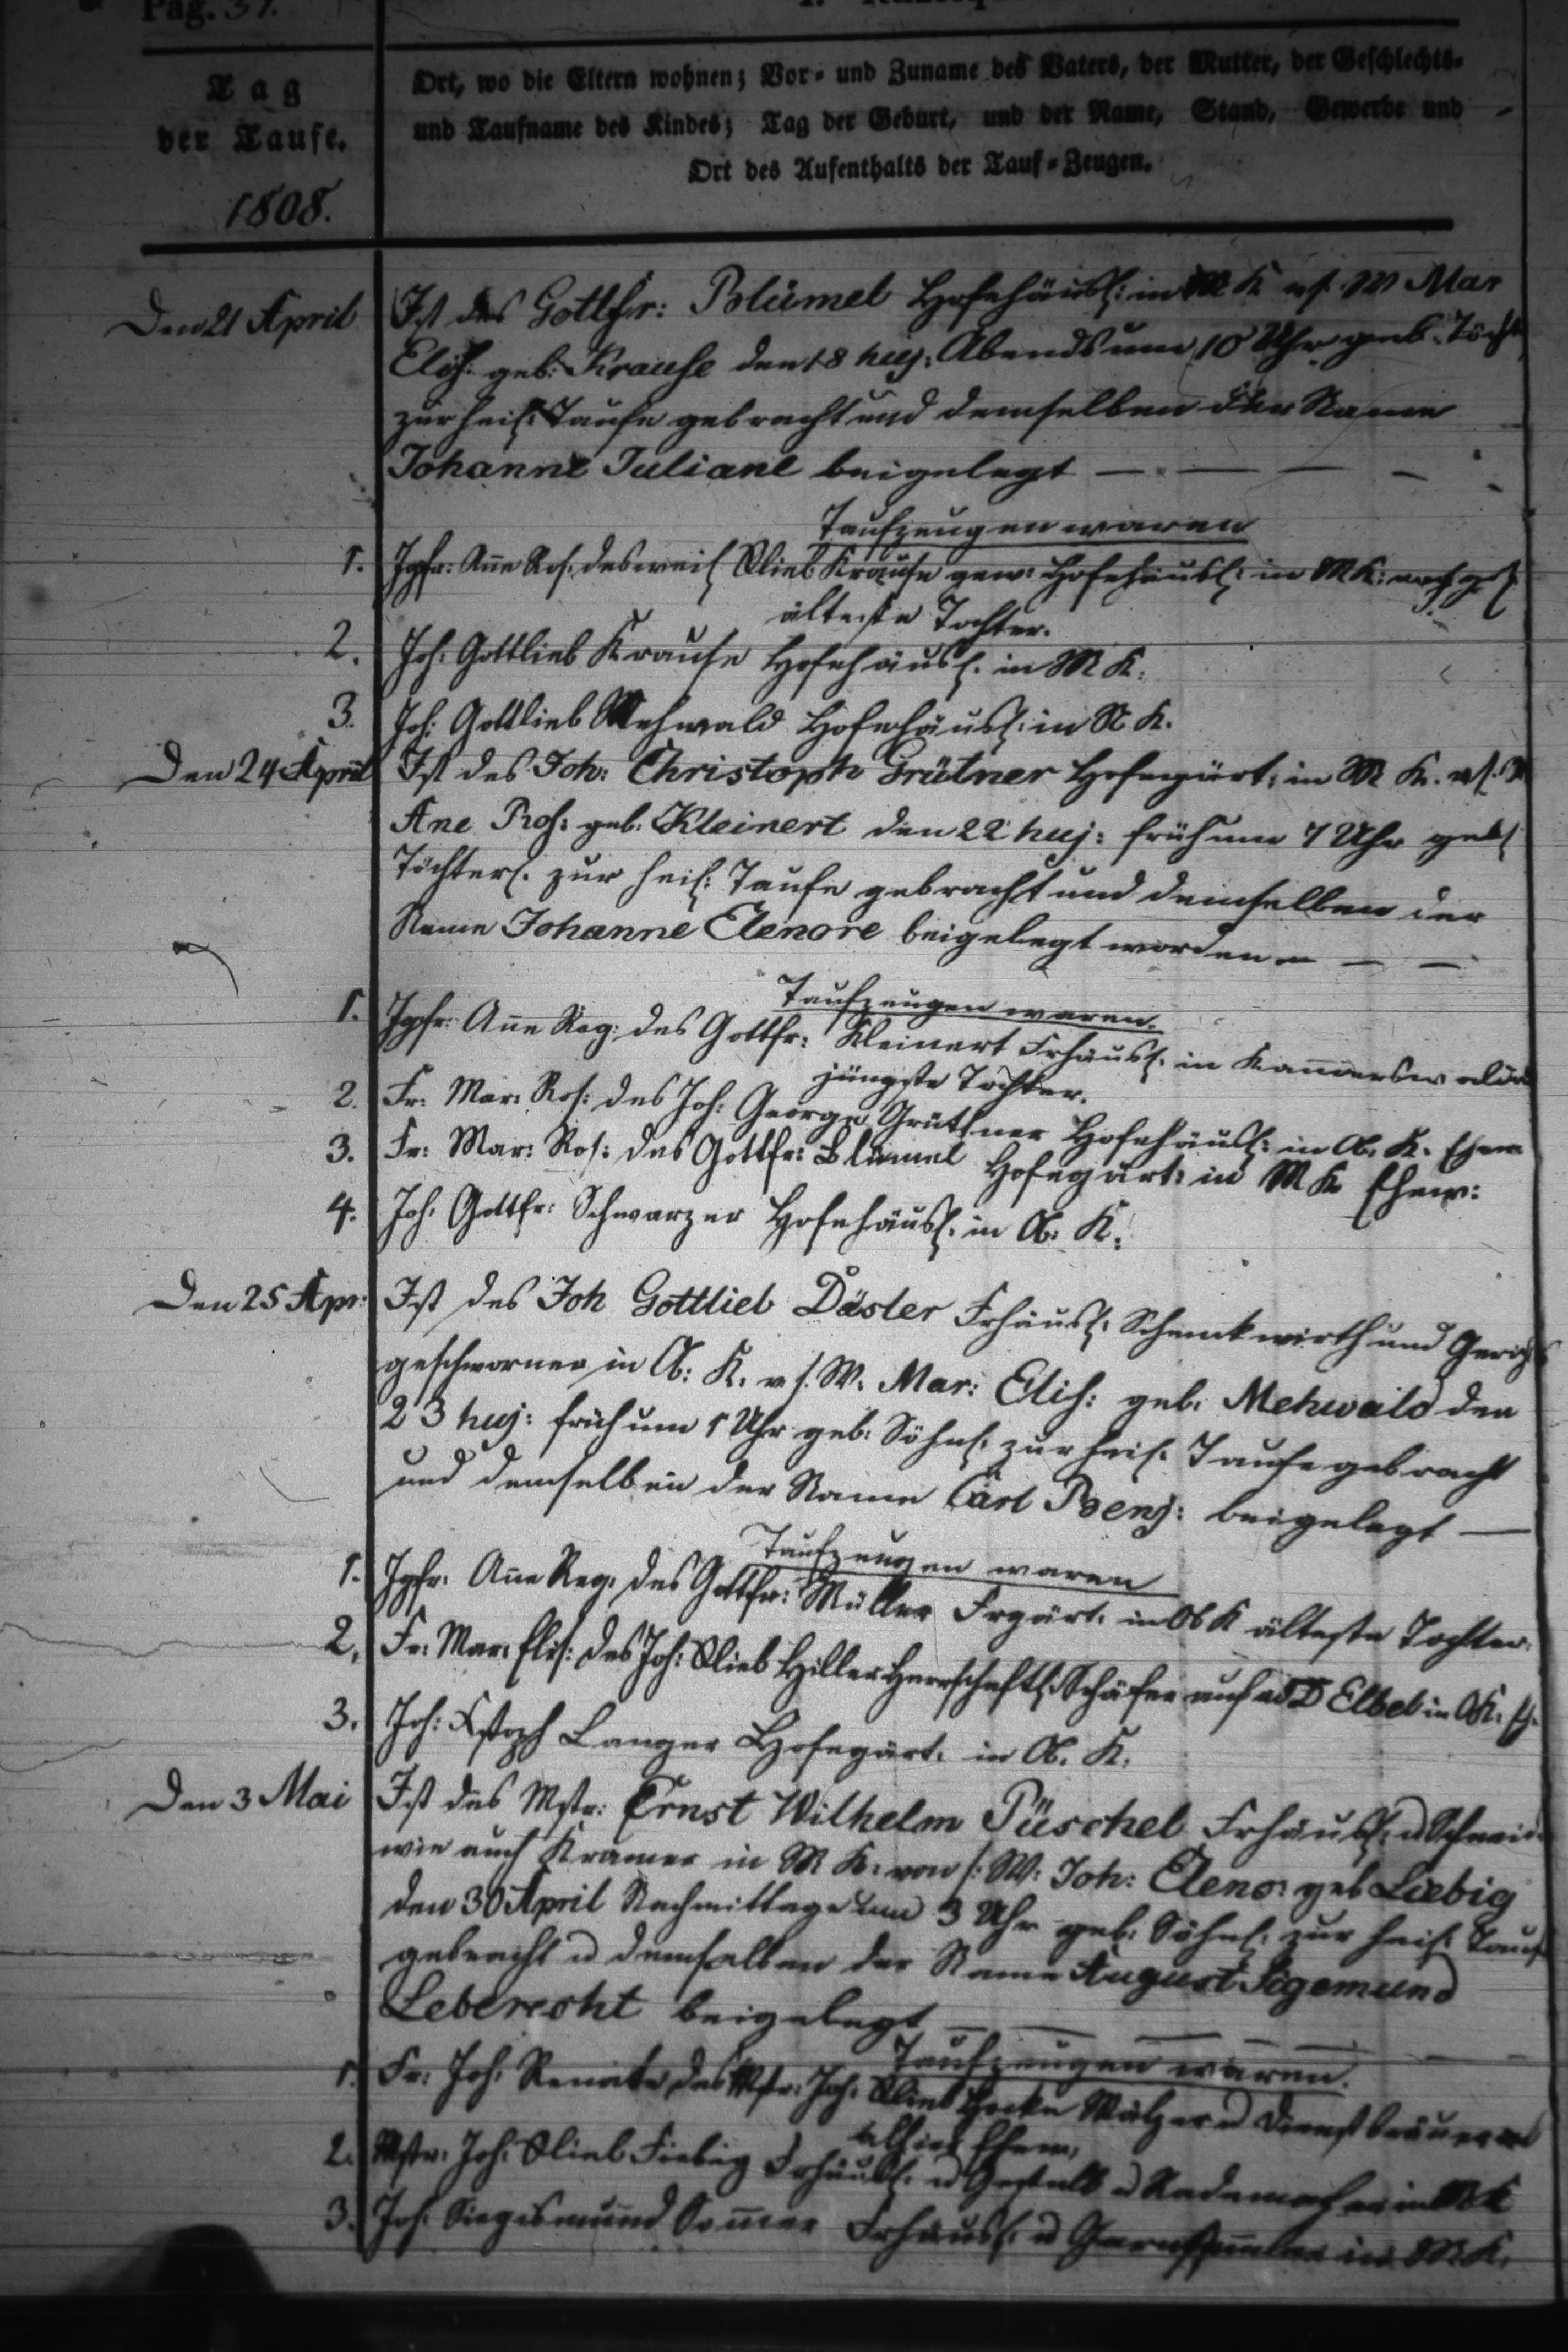 Pag. 37.
Tag
der Taufe.
1808.
Ort, wo die Eltern wohnen; Vor- und Zuname des Vaters, der Mutter, der Geschlechts-
und Taufname des Kindes; Tag der Geburt, und der Name, Stand, Gewerbe und
Ort des Aufenthalts der Tauf-Zeugen.
Den 21 April Ist des Gottfr: Blümel Hofehäusl: in M K v s. W Mar
Elis. geb: Krause den 18 huj: Abends um 10 Uhr geb. Töcht
zur heil: Taufe gebracht und demselben der Name
Johanne Juliane beigelegt — — — —
Taufzeugen waren
1. Jgfr: Ane Ros. des weil Glieb Krause gew: Hofehäusl: in M K:
älteste Tochter.
2. Joh: Gottlieb Krause Hofehäusl. in M K.
3. Joh: Gottlieb Mehwald Hofehäusl: in N K.
Den 24 April Ist des Joh: Christoph Grütner Hofegärt: in M K. v s. W
Ane Ros: geb: Kleinert den 22 huj: früh um 7 Uhr geb
Töchterl. zur heil: Taufe gebracht und demselben der
Name Johanne Elenore beigelegt worden — — —
Taufzeugen waren.
1. Jgfr: Ane Reg: des Gottfr: Kleinert Frhäusl. in Kamerswaldau
jüngste Tochter.
2. Fr: Mar: Ros: des Joh: George Grüttner Hofehäusl: in Ob. K. Ehew
3. Fr: Mar: Ros: des Gottfr: Blümel Hofegärt: in M K Ehew:
4. Joh: Gottfr: Schwarzer Hofehäusl. in Ob: K:
Den 25 Apr: Ist des Joh Gottlieb Däsler Frhäusl. Schenkwirth und Gerichts
geschworner in Ob: K. v s. W. Mar: Elis: geb: Mehwald den
23 huj: früh um 1 Uhr geb: Söhnl. zur heil. Taufe gebracht
und demselben der Name Carl Benj: beigelegt —
Taufzeugen waren
1. Jgfr. Ane Reg. des Gottfr: Müller Frgärt. in Ob K älteste Tochter.
2. Fr: Mar: Elis: des Joh: Glieb Hiller Herrschaftl. Schäfer auf Elbel in Ob K.
3. Joh: Xstoph Langer Hofegärt. in Ob. K.
Den 3 Mai Ist des Mstr: Ernst Wilhelm Püschel Frhäusl: u Schneid
wie auch Kramer in M K: von s: W: Joh: Eleno: geb Liebig
den 30 April Nachmittage um 3 Uhr geb: Söhnl: zur heil. Tauf
gebracht u demselben der Name August Sigemund
Leberecht beigelegt — — — — —
Taufzeugen waren.
1. Fr: Joh: Renate des Mstr: Joh: Glieb Hocke Mälzer u Dienstbräuer
allhier Ehew.
2. Mstr. Joh: Glieb Fiebig Frhäusl: u Gestell u Rademacher in M K
3. Joh: Siegismund Somer Frhäusl. u Garnsamler in M K.